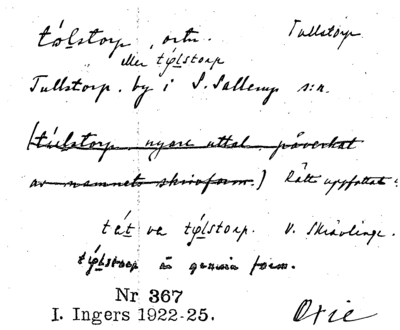 tólstorp, ortn. Tullstorp
eller tý̱lstorp
Tullstorp. by i S. Sallerup s:n.
(túlstorp nyare uttal, påverkat
av namnets skrivform.) Rätt uppfattat
tét va tý̱lstorp. V. Skrävlinge.
tý̱lstorp är gamla form.
Nr 367
I. Ingers 1922-25. Oxie